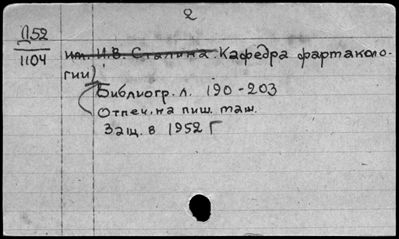 2
Д52
1104
им. И.В. Сталина. Кафедра фартаколо-
гии).
Библиогр. л. 190-203
Отпеч. на пиш. маш.
Защ. в 1952 г